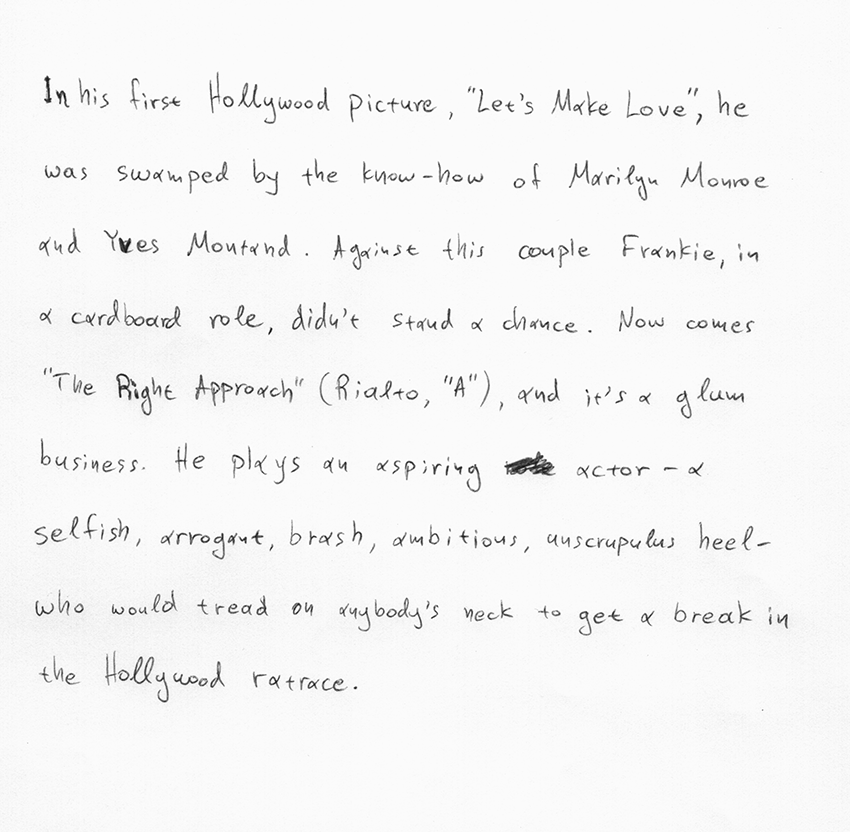 In his first Hollywood picture, "Let's Make Love", he
was swamped by the know-how of Marilyn Monroe
and Yves Montand. Against this couple Frankie, in
a cardboard role, didn't stand a chance. Now comes
"The Right Approach" (Rialto, "A"), and it's a glum
business. He plays an aspiring actor - a
selfish, arrogant, brash, ambitious, unscrupulus heel-
who would tread on anybody's neck to get a break in
the Hollywood ratrace.